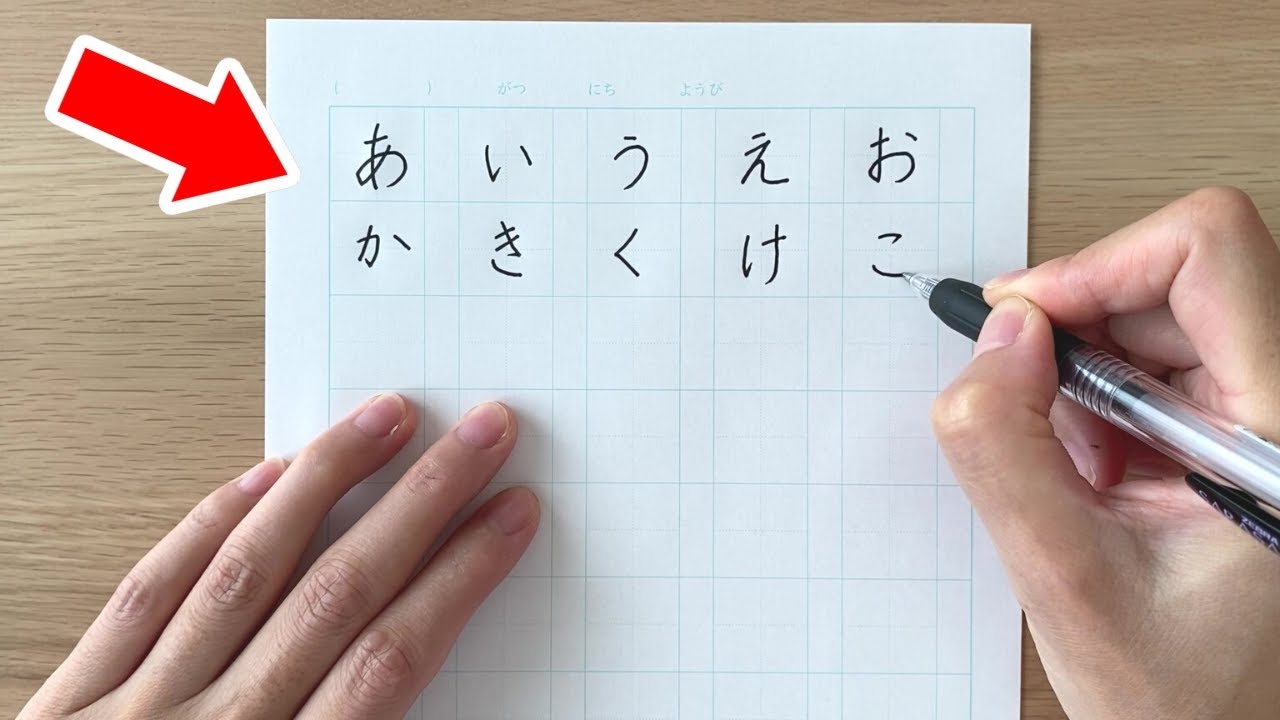 ( ) がつ にち ようび
あ い う え お
か き く け こ